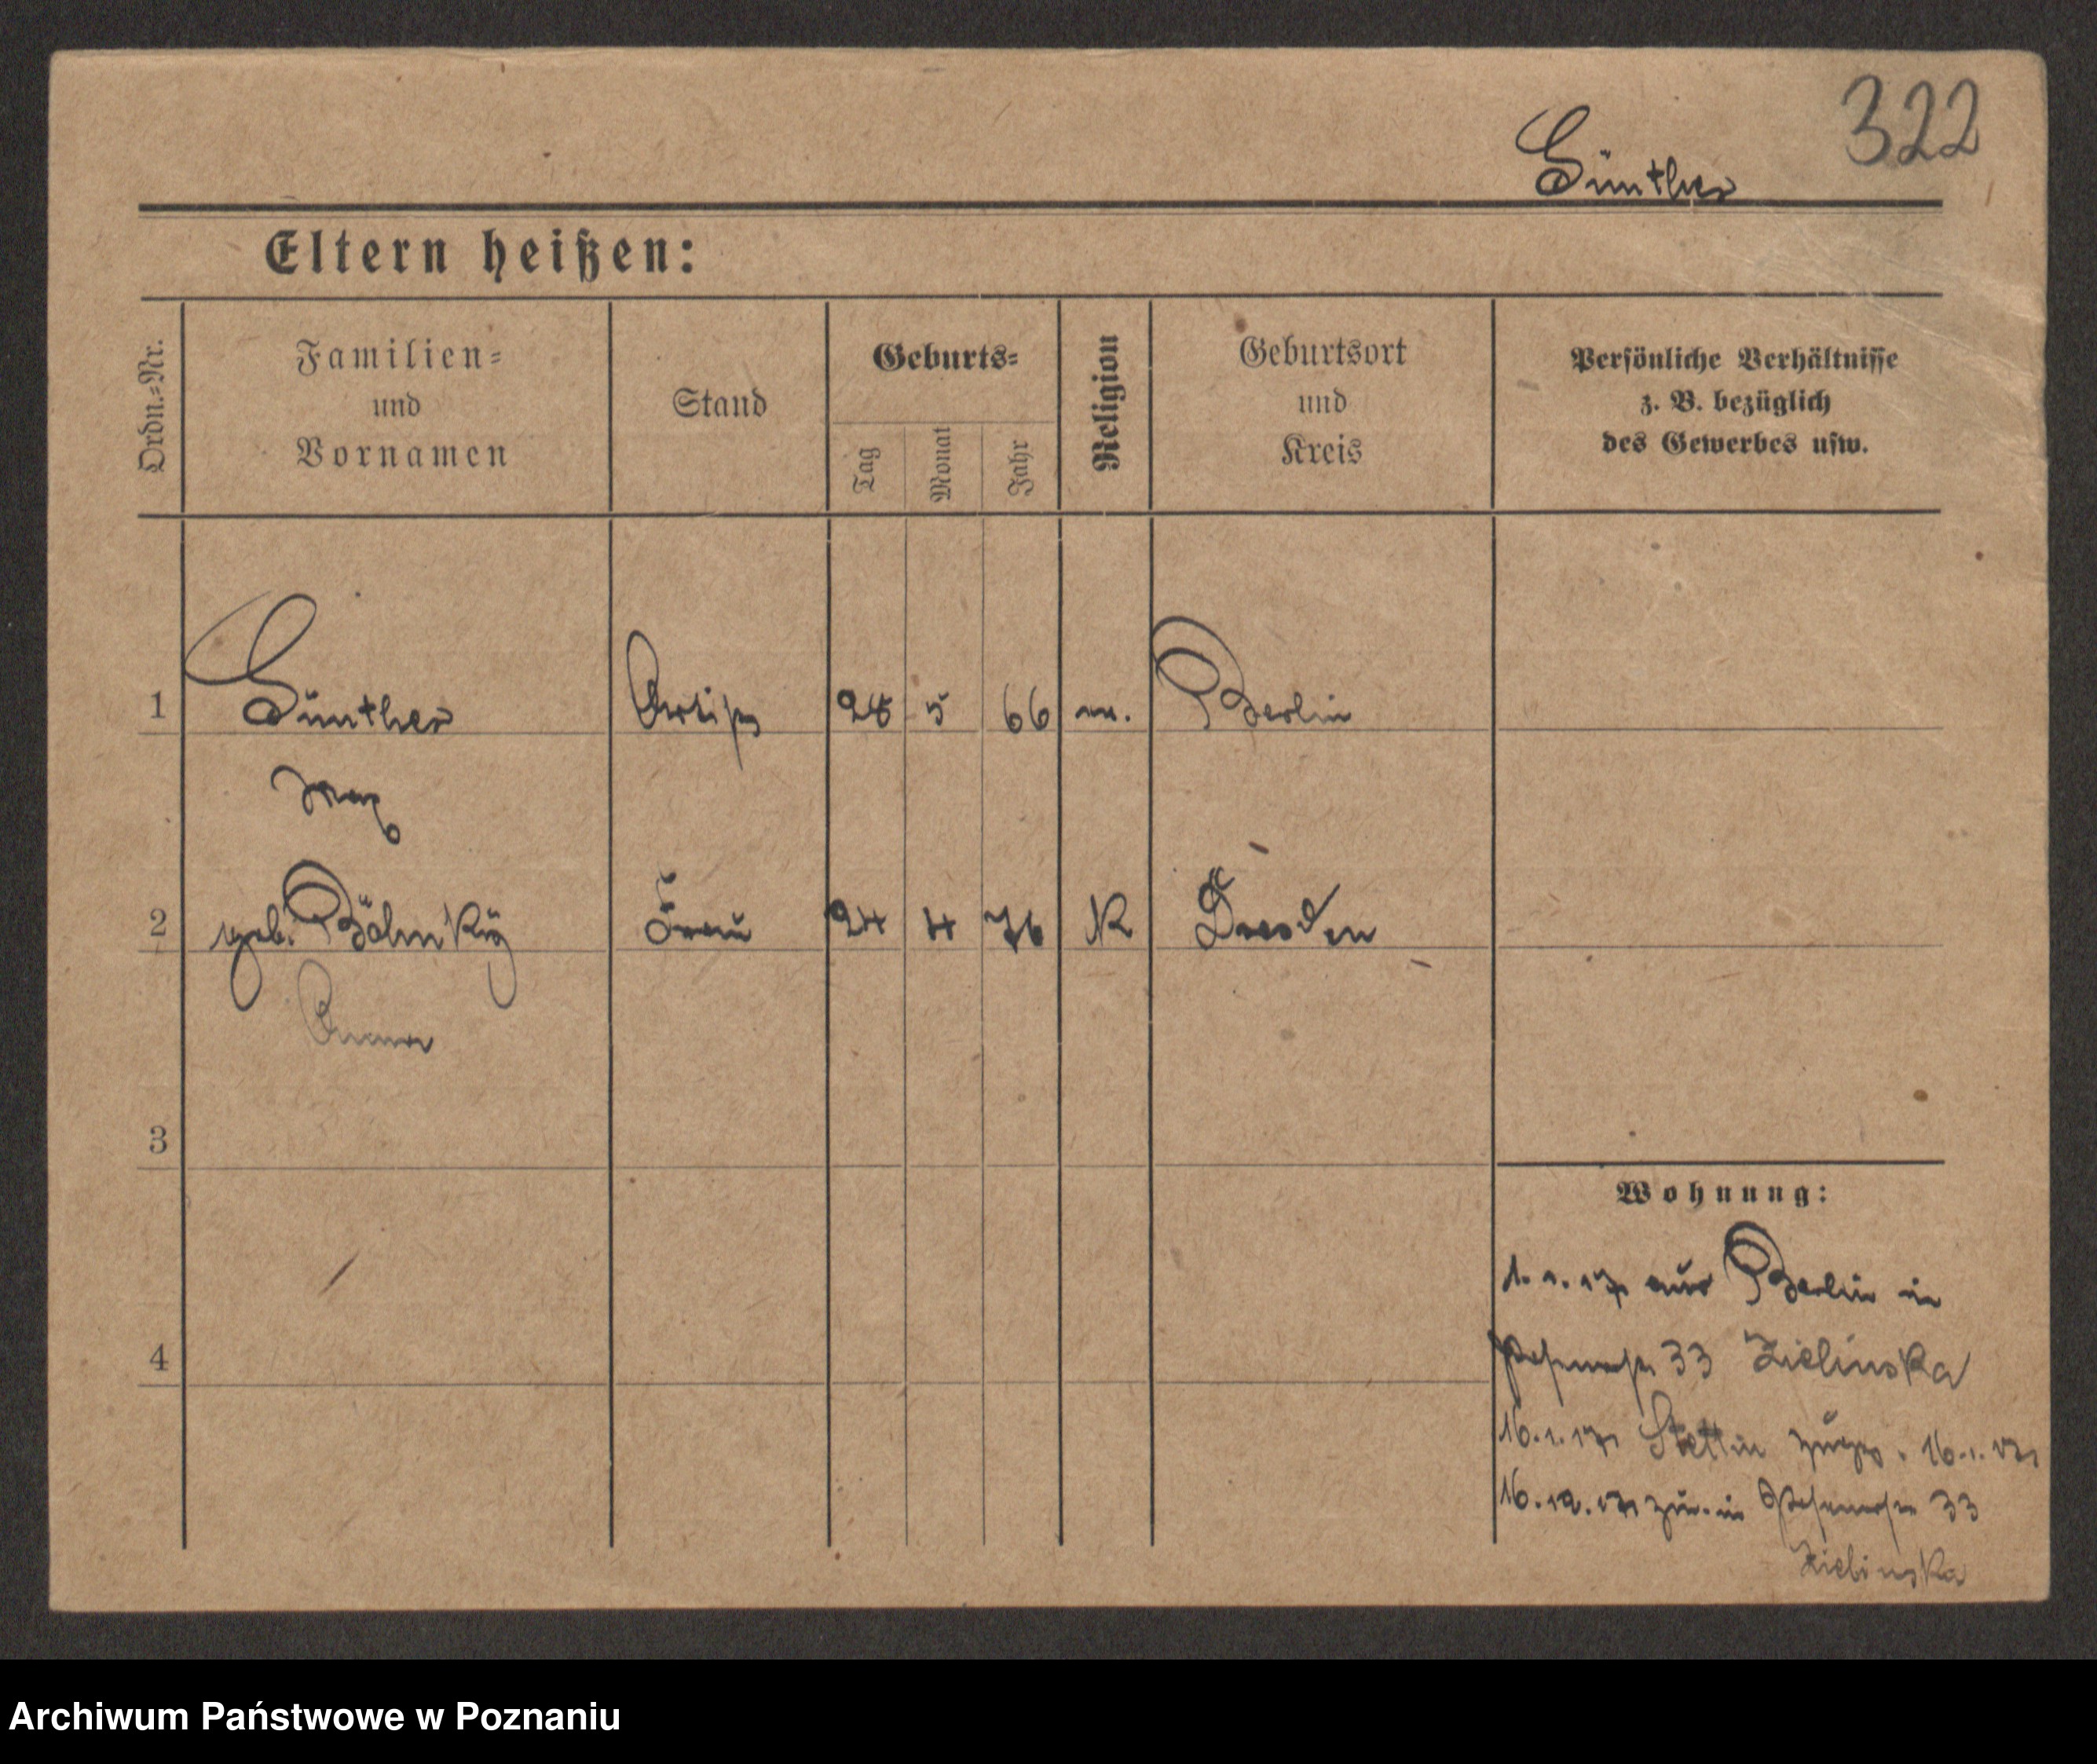 322
Günther
Eltern heißen:
Ordn.=Nr.
Familien=
und
Vornamen
Stand
Geburts=
Tag
Monat
Jahr
Religion
Geburtsort
und
Kreis
Persönliche Verhältnisse
z. B. bezüglich
des Gewerbes usw.
1 Günther Artist 28 5 66 Berlin
Max
2 geb. Frau 24 4 76 K Dresden
Anna
3
Wohnung:
1.1.17 aus Berlin in
33 Zielinska
4
16.1.17 Stettin
16.12.17 in 33
Zielinska
Archiwum Państwowe w Poznaniu